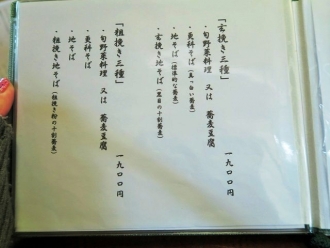 「玄挽き三種」
・旬野菜料理 又は 蕎麦豆腐
・更科そば（真っ白い蕎麦）
・地そば（標準的な蕎麦）
・玄挽き地そば（黒目の十割蕎麦）
一九〇〇円
「粗挽き三種」
・旬野菜料理 又は 蕎麦豆腐
・更科そば
・地そば
・粗挽き地そば（粗挽き粉の十割蕎麦）
一九〇〇円